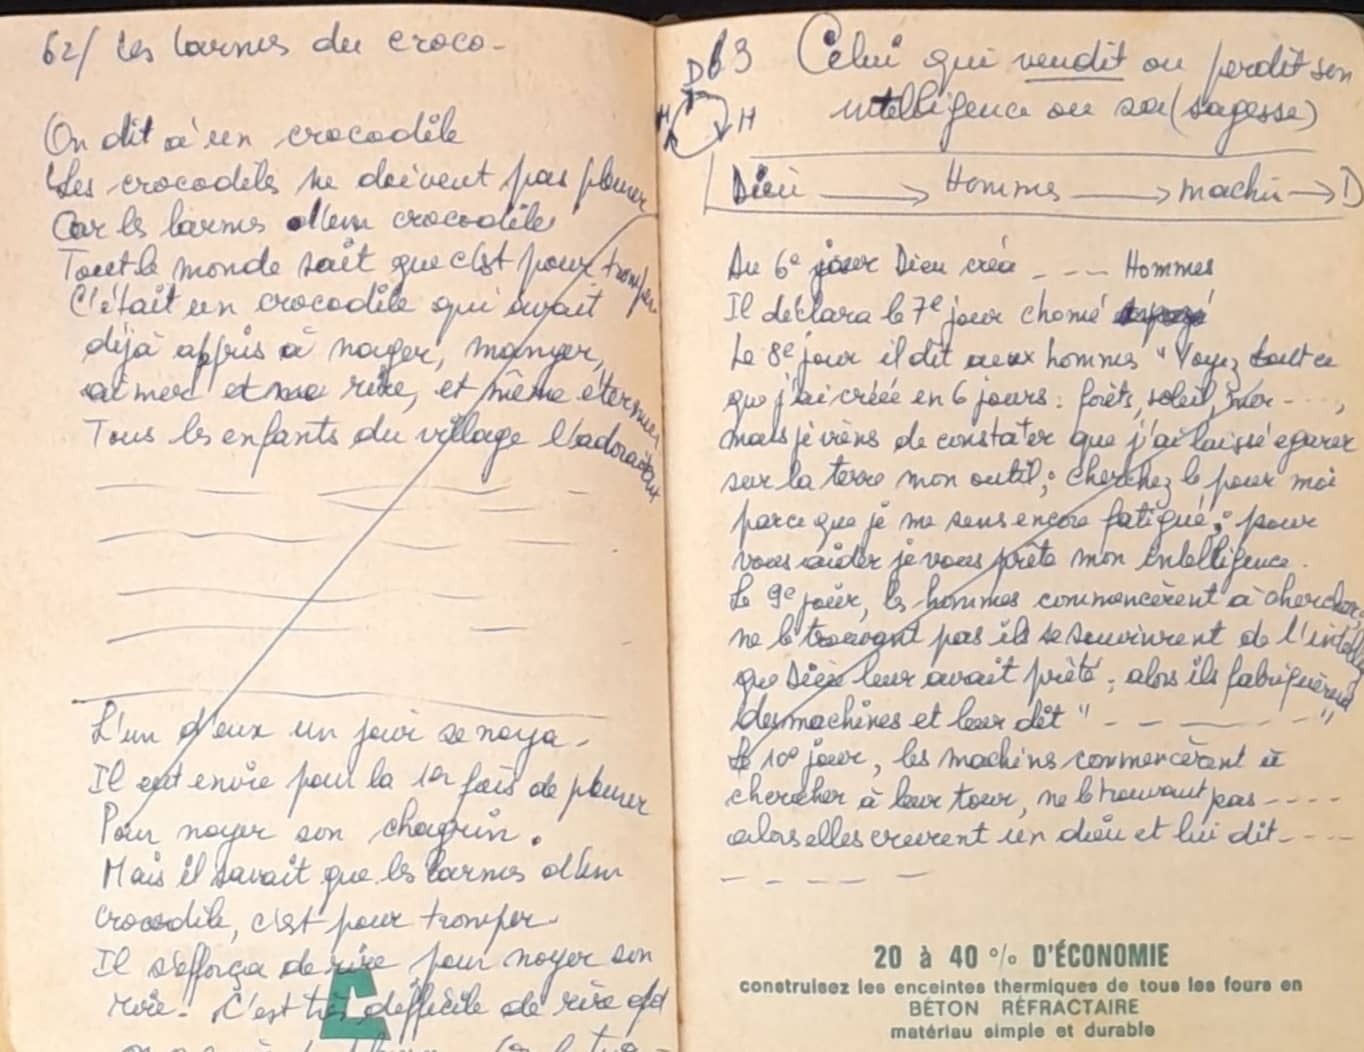 62/ Les larmes du croco-
On dit à un crocodile
"Les crocodiles ne doivent pas pleurer
Car les larmes d'un crocodile
Tout le monde sait que c'est pour tromper
C'était un crocodile qui avait
déjà appris à nager, manger,
aimer et rire, et même éternuer
Tous les enfants du village l'adoraient
L'un d'eux un jour se noya.
Il eut envie pour la 1er fois de pleurer
Pour noyer son chagrin.
Mais il savait que les larmes d'un
crocodile, c'est pour tromper
Il s'efforça de rire pour noyer son
rire. C'est très difficile de rire qd
63 Celui qui vendit ou perdit son
intelligence ou sa (sagesse)
D
H H
Dieu → Hommes → machin → D
Au 6e jour Dieu créa _ _ _ Hommes
Il déclara le 7e jour chomé
Le 8e jour il dit aux hommes "Voyez tout ce
que j'ai créée en 6 jours : forêts, soleil, mer - - - ,
mais je viens de constater que j'ai laissé egarer
sur la terre mon outil, cherchez le pour moi
parce que je me sens encore fatigué ; pour
vous aider je vous prête mon intelligence.
Le 9e jour, les hommes commencèrent à chercher,
ne le trouvant pas ils se souvinrent de l'intellig
que Dieu leur avait prêté ; alors ils fabriquèrent
des machines et leur dit " - - - - - "
Le 10e jour, les machins commencèrent à
chercher à leur tour, ne le trouvant pas - - - -
alors elles crevrent un dieu et lui dit - - - -
- - - - -
20 à 40 % D'ÉCONOMIE
construisez les enceintes thermiques de tous les fours en
BÉTON RÉFRACTAIRE
matériau simple et durable
C